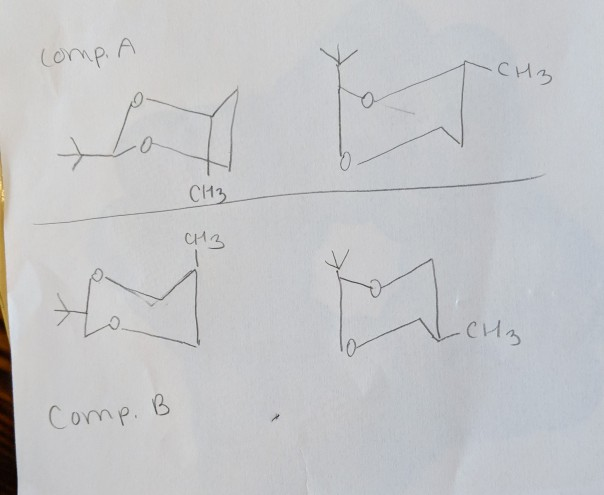 Comp. A
O
O
CH3
O
CH3
O
CH3
O
O
O
CH3
O
Comp. B